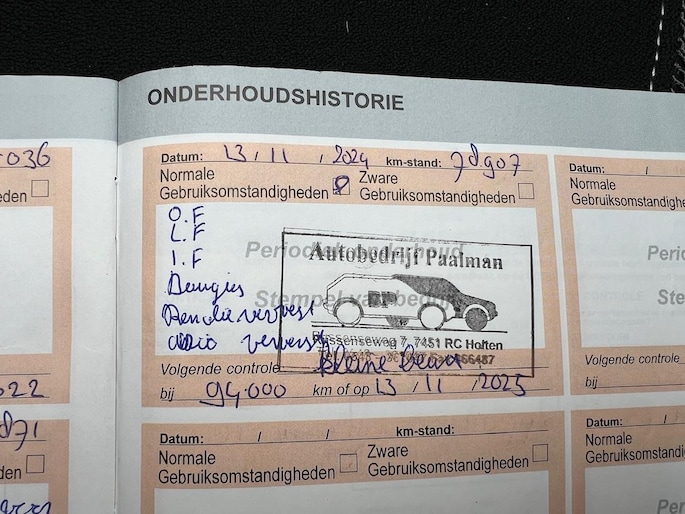 ONDERHOUDSHISTORIE
036
Datum: 13 / 11 / 2024 km-stand:
Normale Gebruiksomstandigheden Zware Gebruiksomstandigheden
eden
Datum:
Normale
Gebruiksomstandigheden
O.F
L.F
I.F
Periodiek onderhoud
Stempel van
Autobedrijf Paalman
7451 RC Holten
66487
kleine beurt
Volgende controle
bij 94.000 km of op 13 / 11 / 2025
Perio
Ste
Volgende controle
bij
022
71
den
Datum: / / km-stand:
Normale Gebruiksomstandigheden Zware Gebruiksomstandigheden
Datum: /
Normale
Gebruiksomstandighede
Per